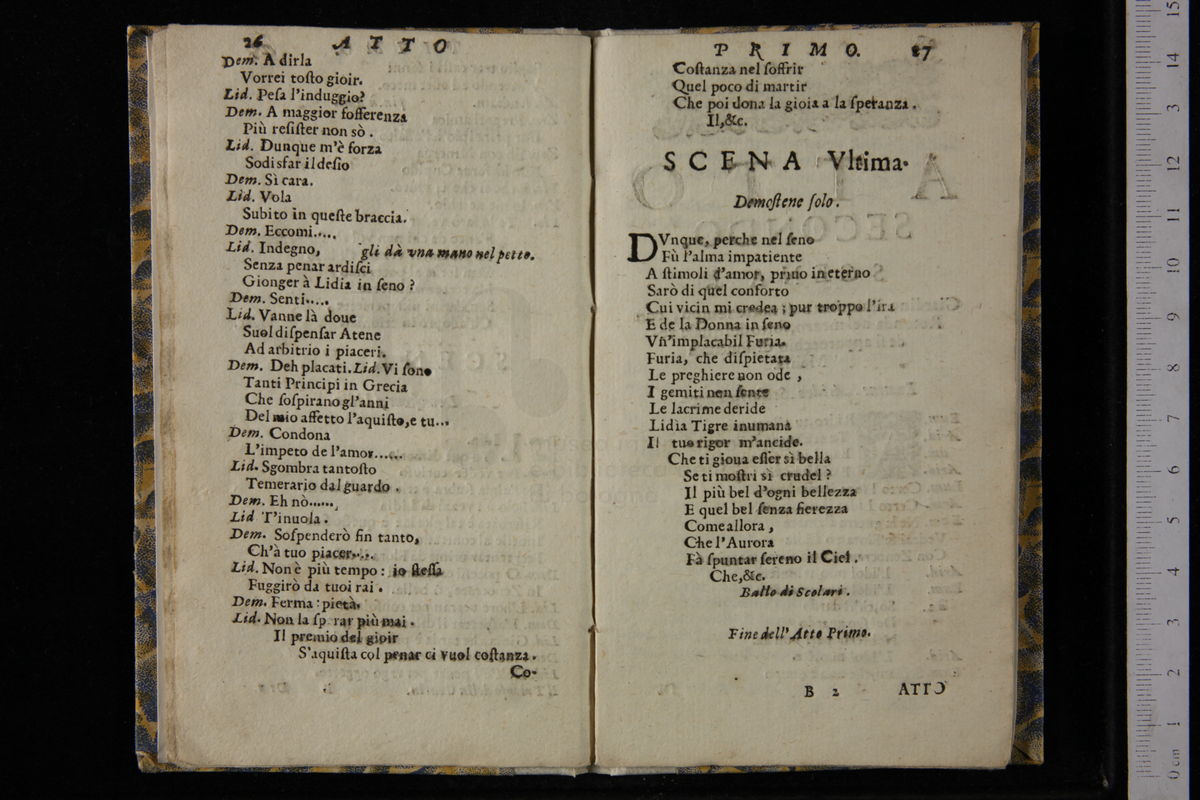 26 ATTO
Dem. A dirla
Vorrei toſto gioir.
Lid. Peſa l'induggio?
Dem. A maggior ſofferenza
Più reſiſter non sò .
Lid. Dunque m'è forza
Sodisfar il deſio
Dem. Sì cara.
Lid. Vola
Subito in queſte braccia.
Dem. Eccomi.....
Lid. Indegno, gli dà vna mano nel petto.
Senza penar ardiſci
Gionger à Lidia in ſeno ?
Dem. Senti.....
Lid. Vanne là doue
Suol diſpenſar Atene
Ad arbitrio i piaceri.
Dem. Deh placati. Lid. Vi ſono
Tanti Principi in Grecia
Che ſoſpirano gl'anni
Del mio affetto l'aquiſto, e tu...
Dem. Condona
L'impeto de l'amor......
Lid. Sgombra tantoſto
Temerario dal guardo .
Dem. Eh nò......
Lid T'inuola .
Dem. Soſpenderò ſin tanto,
Ch'à tuo piacer.....
Lid. Non è più tempo : io ſteſſa
Fuggirò da tuoi rai .
Dem. Ferma : pietà.
Lid. Non la ſp rar più mai .
Il premio del gioir
S'aquiſta col penar ci vuol coſtanza.
Co-
PRIMO. 27
Coſtanza nel ſoffrir
Quel poco di martir
Che poi dona la gioia a la ſperanza .
Il,&c.
SCENA Vltima.
Demoſtene ſolo .
DVnque, perche nel ſeno
Fù l'alma impatiente
A ſtimoli d'amor, priuo in eterno
Sarò di quel conforto
Cui vicin mi credea ; pur troppo l'ira
E de la Donna in ſeno
Vn'implacabil Furia.
Furia, che diſpietata
Le preghiere non ode ,
I gemiti non ſente
Le lacrime deride
Lidia Tigre inumana
Il tuo rigor m'ancide.
Che ti gioua eſſer sì bella
Se ti moſtri sì crudel ?
Il più bel d'ogni bellezza
E quel bel ſenza fierezza
Come allora ,
Che l'Aurora
Fà ſpuntar ſereno il Ciel .
Che,&c.
Ballo di Scolari .
Fine dell' Atto Primo.
B 2 ATTO